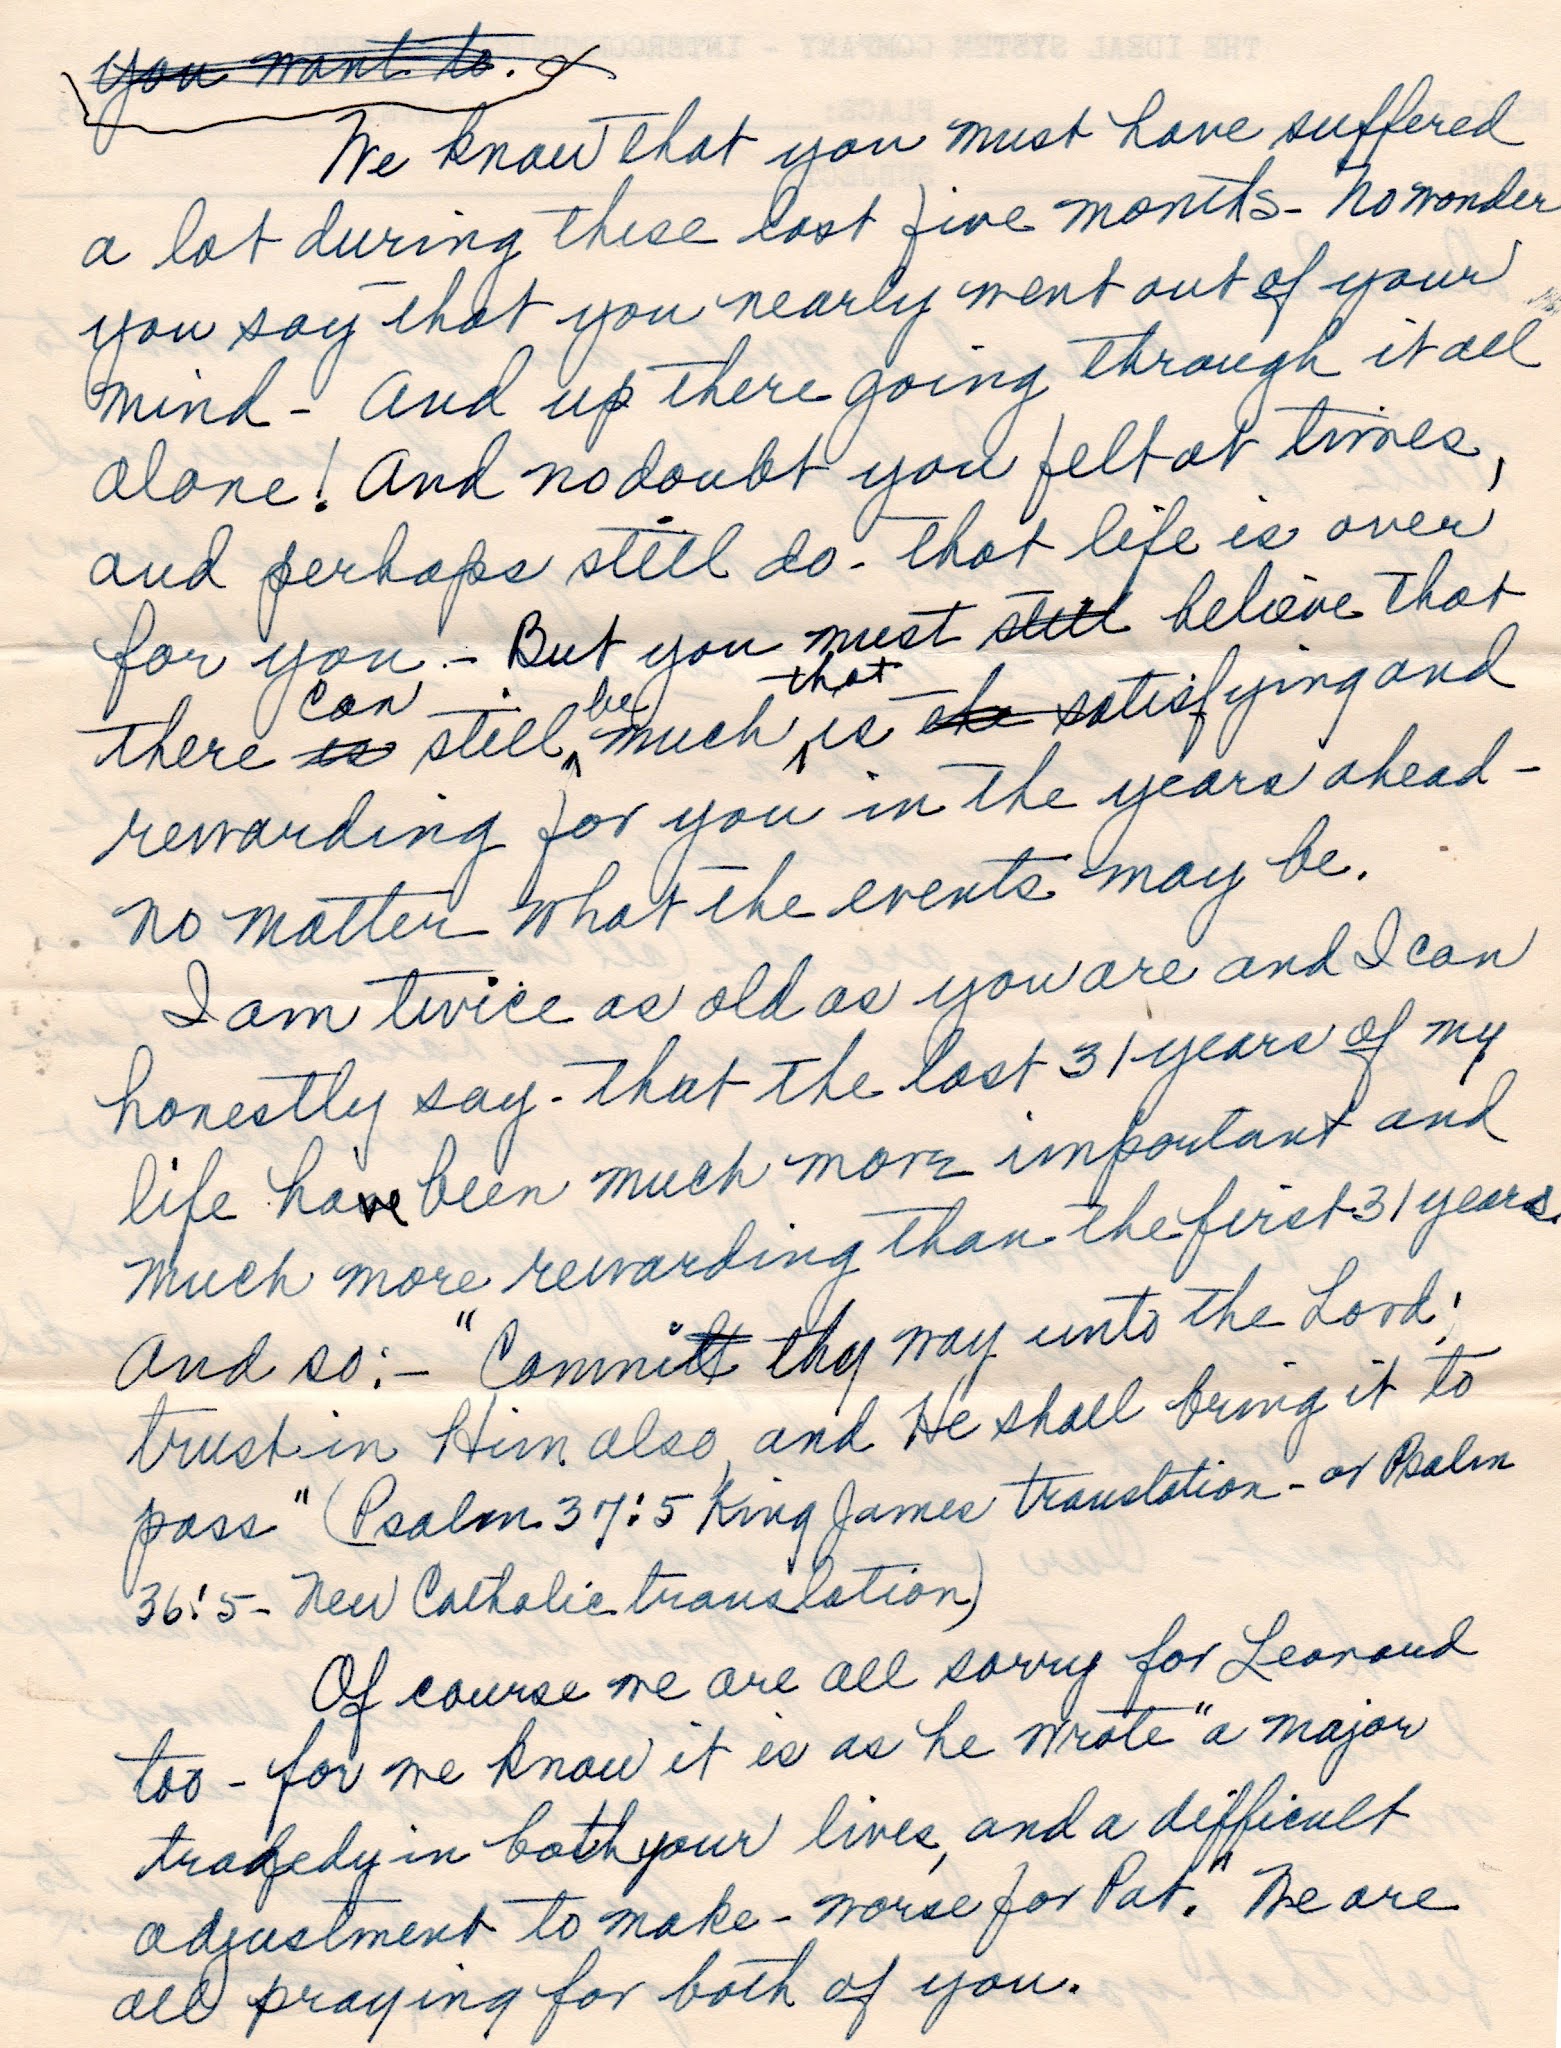 THE IDEAL SYSTEM COMPANY - 
PLACE:
you want to.
We know that you must have suffered
a lot during these last five months - No wonder
you say that you nearly went out of your
mind - And up there going through it all
alone! And no doubt you felt at times,
and perhaps still do - that life is over
for you - But you must still believe that
can be that
there is still much is the satisfying and
rewarding for you in the years ahead -
no matter what the events may be.
I am twice as old as you are and I can
honestly say - that the last 31 years of my
life have been much more important and
much more rewarding than the first 31 years.
And so: - "Commit thy way unto the Lord;
trust in Him also, and He shall bring it to
pass" (Psalm 37:5 King James translation - or Psalm
36:5 - New Catholic translation)
Of course we are all sorry for Leonard
too - for we know it is as he wrote "a major
tragedy in both your lives, and a difficult
adjustment to make - worse for Pat." We are
all praying for both of you.